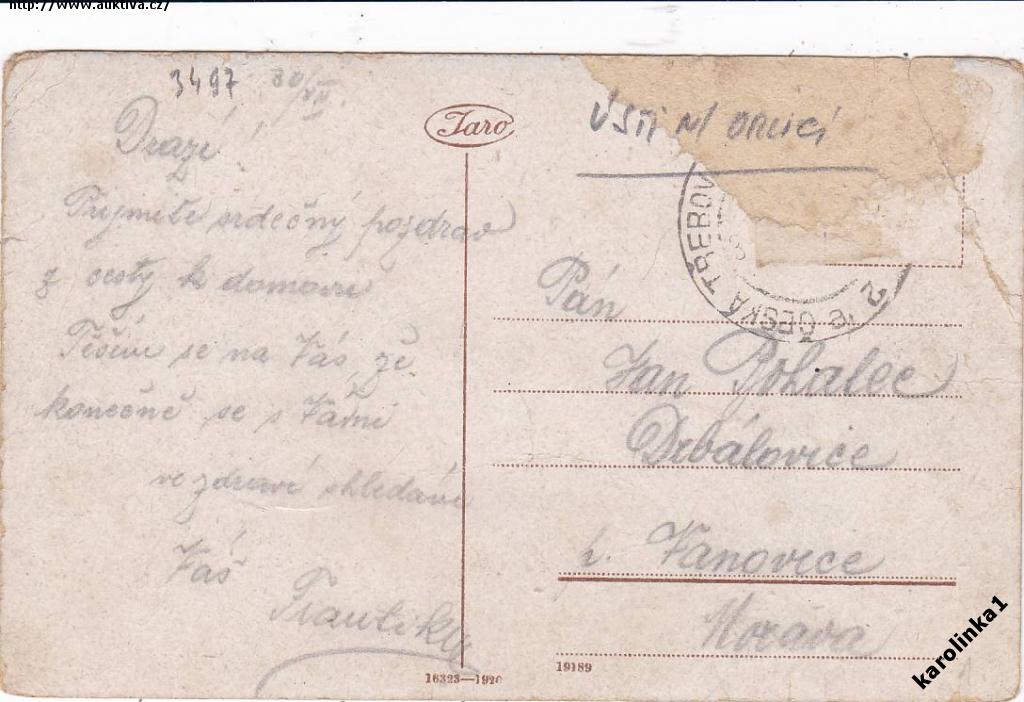 http://www.auktiva.cz/
3497 30/XII.
Drazí
Přijměte srdečný pozdrav
z cesty k domovu
Těšíme se na Vás, že
konečně se s Vámi
ve zdraví shledáme
Váš
Jaro
16323—1920
ÚSTÍ N/ ORLICÍ
ČESKÁ TŘEBOV
2
Pán
Jan
Drbálovice
p. Vanovice
Morava
19189
karolinka1